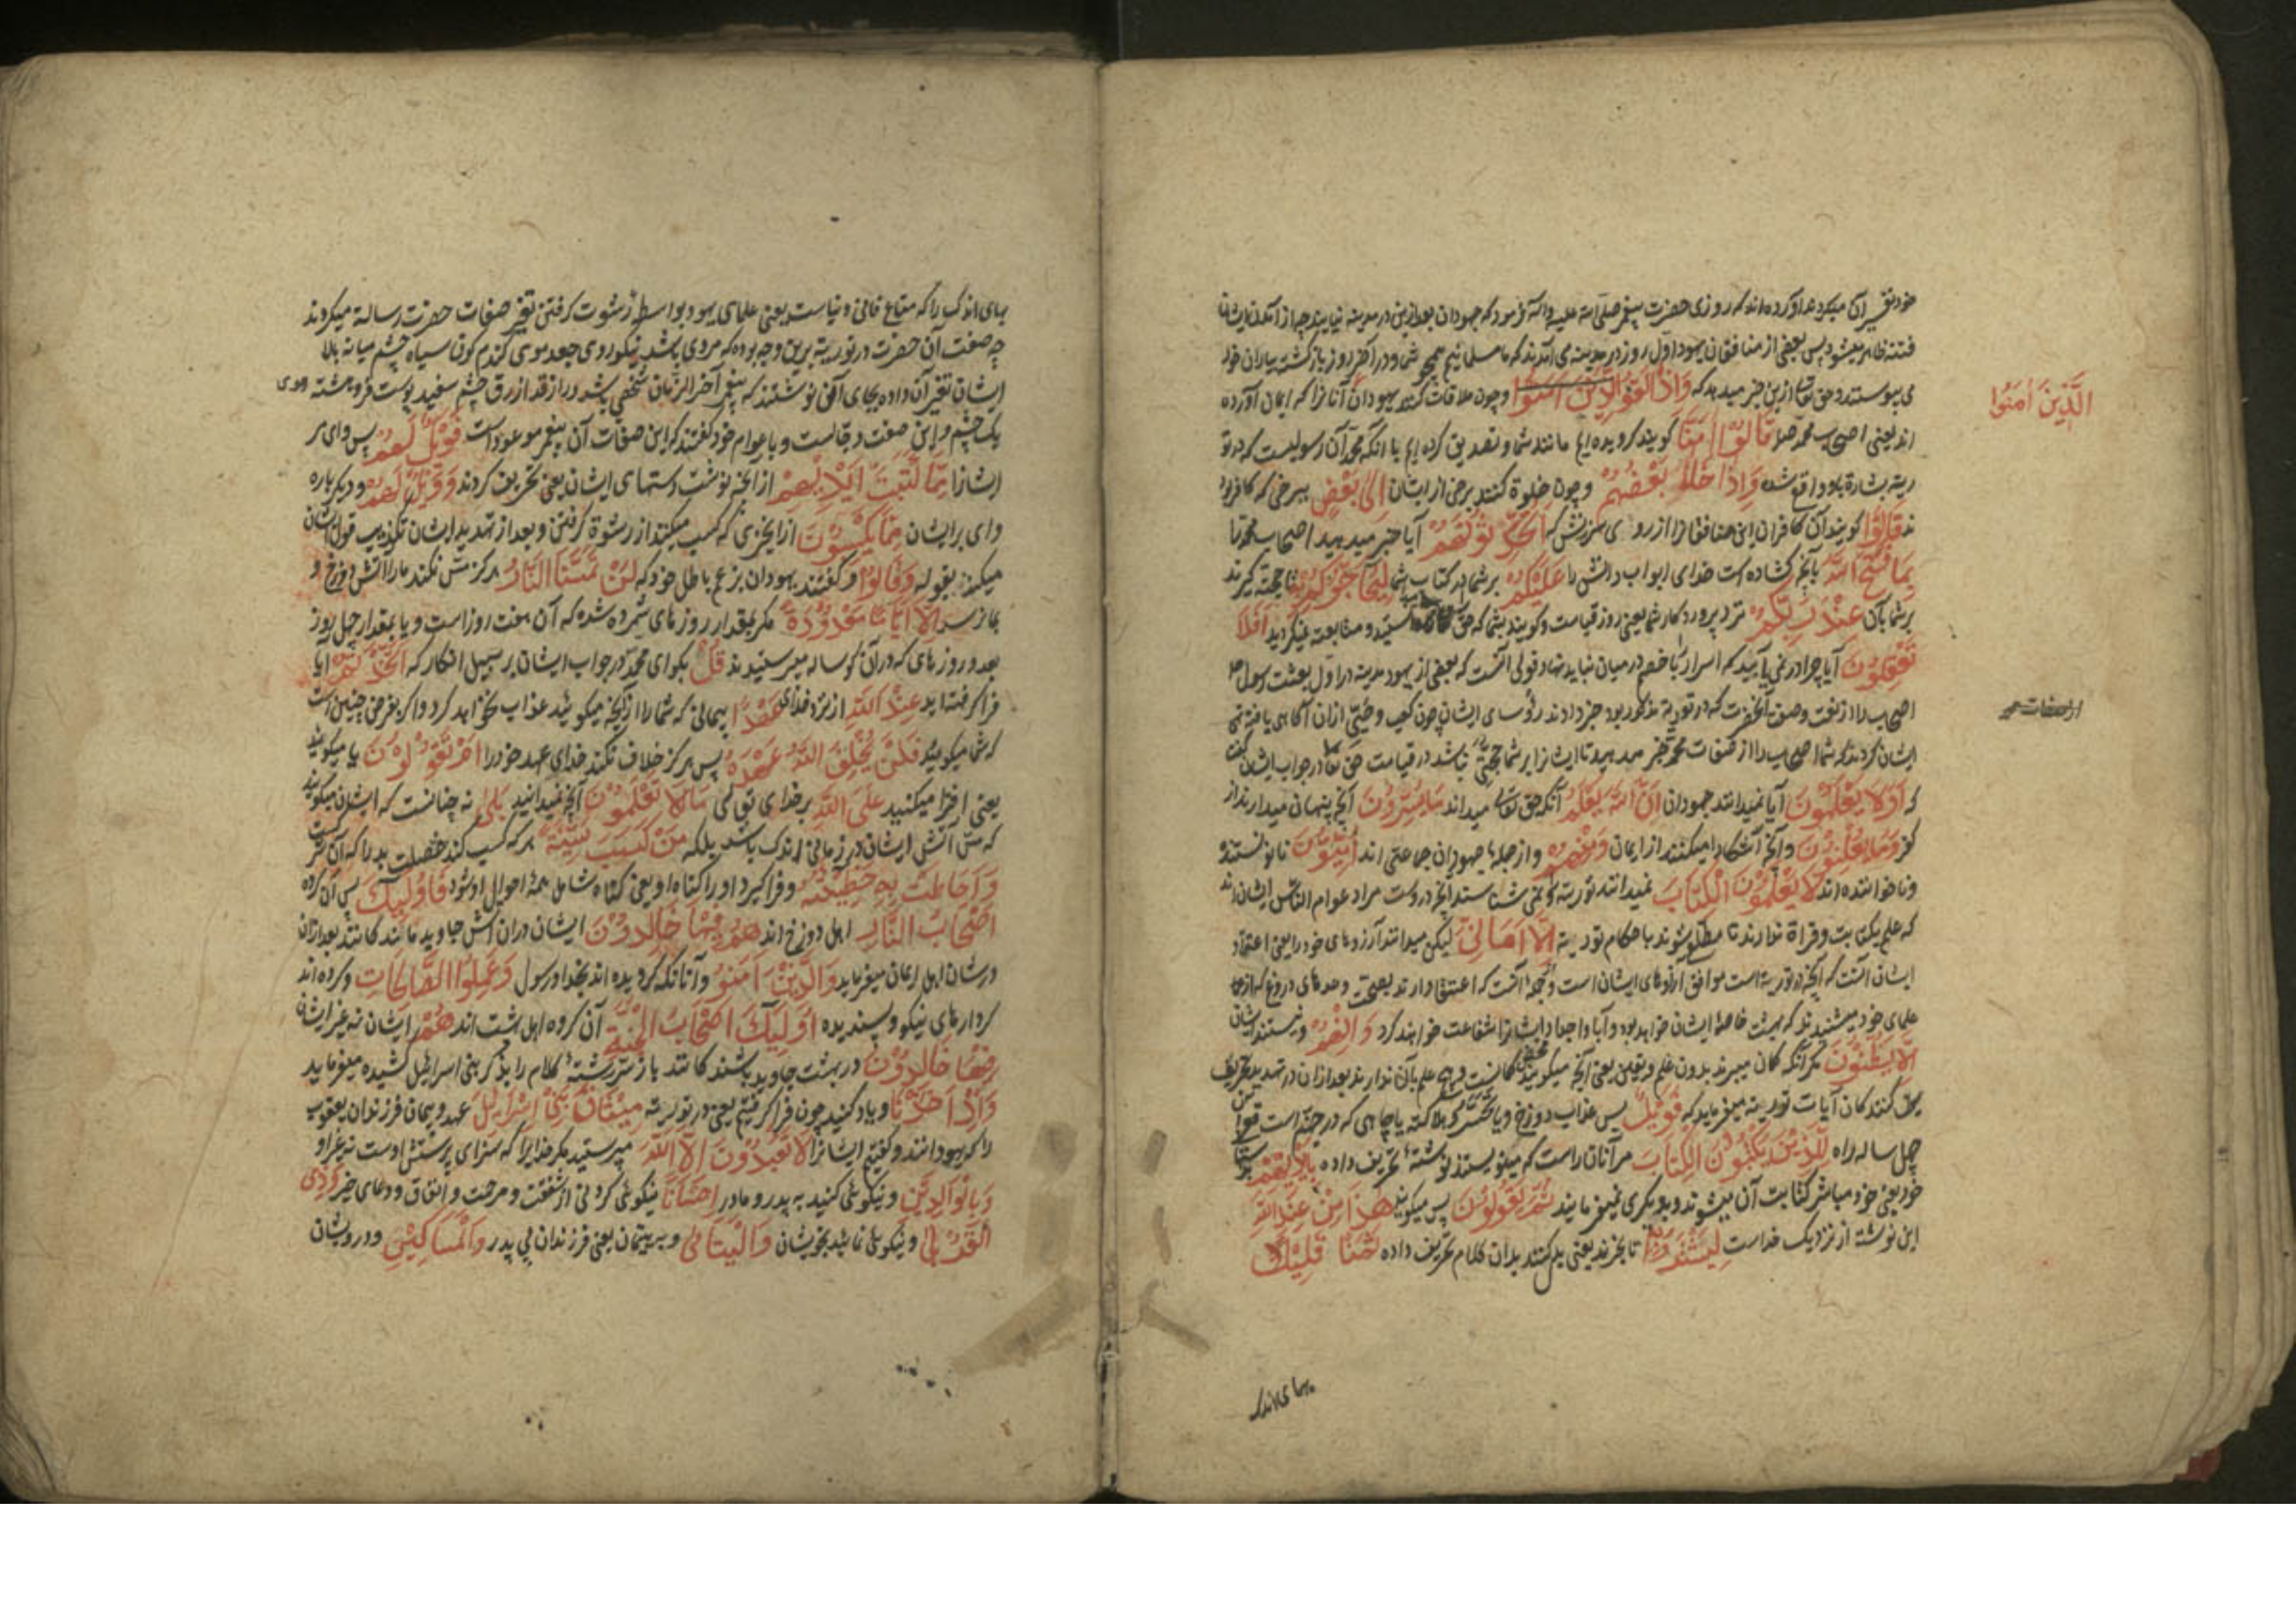 خود تفسیر آن میکردند آورده‌اند که روزی حضرت پیغمبر صلی الله علیه واله فرمود که جهودان بعد ازین در مدینه نیایند چه از آمدن ایشان
فتنه ظاهر میشود پس بعضی از منافقان یهود اول روز در مدینه می آمدند که ما مسلمانیم همچو شما و در آخر روز بازگشته بیاران خود
می پیوستند و حق تعا ازین خبر میدهد که وَاِذَا لَقُوا الَّذِینَ آمَنُوا و چون ملاقات کنند یهودان آنانرا که ایمان آورده
الَّذِینَ اٰمَنُوا
اند یعنی اصحاب محمد صلعم قَالُوا اٰمَنَّا گویند گرویده ایم مانند شما و تصدیق کرده ایم با آنکه محمد آن رسولیست که در تو
ریة بشارة باو واقع شده وَاِذَا خَلَا بَعْضُهُمْ و چون خلوة کنند برخی از ایشان اِلٰی بَعْضٍ ببرخی که کافرو
ند قَالُوا گویند آن کافران این منافقانرا از روی سرزنش که اَتُحَدِّثُونَهُمْ آیا خبر میدهید اصحاب محمد را
بِمَا فَتَحَ اللّٰهُ بآنچه گشاده است خدای ابواب دانش را عَلَیْکُمْ بر شما در کتاب شما لِیُحَاجُّوکُمْ بِهِ تا حجة گیرند
بر شما بآن عِنْدَ رَبِّکُمْ نزد پروردگار شما یعنی روز قیامت و گویند بشما که حق دانستید و متابعت نمیکردید اَفَلَا
تَعْقِلُونَ آیا چرا در نمی یابید که اسرار با خصم در میان نباید نهاد و قولی آنست که بعضی از یهود مدینه در اول بعثت رسول صلعم
اصحاب را از نعت و صفت آنحضرت که در توریة مذکور بود خبر دادند رؤسای ایشان چون کعب و حیّی ازان آگاهی یافته نهی
از صفات محمد
ایشان کردند که شما اصحاب را از صفات محمد خبر مدهید تا ایشانرا بر شما حجتی نباشد در قیامت حق تعا در جواب ایشان گفت
که اَوَلَا یَعْلَمُونَ آیا نمیدانند جهودان اَنَّ اللّٰهَ یَعْلَمُ آنکه حق تعالی میداند مَا یُسِرُّونَ آنچه پنهان میدارند از
کفر وَمَا یُعْلِنُونَ و آنچه آشکارا میکنند از ایمان وَمِنْهُمْ و از جمله جهودان جماعتی اند اُمِّیُّونَ نانویسنده
و ناخوانده اند لَا یَعْلَمُونَ الْکِتَابَ نمیدانند توریة و نمی شناسند آنچه دروست مراد عوام الناس ایشان اند
که علم بکتابت و قراة ندارند تا مطلع شوند باحکام توریة اِلَّا اَمَانِیَّ لیکن میدانند آرزوهای خود را یعنی اعتقاد
ایشان آنست که آنچه در توریة است موافق آرزوهای ایشان است و آنست که اعتقاد دارند بصحت وعدهای دروغ که از
علمای خود میشنیدند که بهشت خاصهٔ ایشان خواهد بود و آبا و اجداد ایشانرا شفاعت خواهند کرد وَاِنْ هُمْ و نیستند ایشان
اِلَّا یَظُنُّونَ مگر آنکه گمان میبرند بدون علم و یقین یعنی آنچه میگویند محض گمانست و هیچ علم بآن ندارند بعد ازان در تهدید تحریف
کنندگان آیات توریة میفرماید که فَوَیْلٌ پس عذاب دوزخ و یا هلاکت یا چاهی که در جهنم است
چهل ساله راه لِلَّذِینَ یَکْتُبُونَ الْکِتَابَ مر آنان راست که مینویسند نوشتهٔ تحریف داده بِاَیْدِیهِمْ بدستهای
خود یعنی خود مباشر کتابت آن میشوند و بدیگری نمیفرمایند ثُمَّ یَقُولُونَ پس میگویند هٰذَا مِنْ عِنْدِ اللّٰهِ
این نوشته از نزدیک خداست لِیَشْتَرُوا بِهِ تا بخرند یعنی بدل کنند بدان کلام تحریف داده ثَمَنًا قَلِیلًا
بهای اندک
بهای اندک را که متاع فانی دنیاست یعنی علمای یهود بواسطه رشوت گرفتن تغییر صفات حضرت رسالة میکردند
چه صفت آن حضرت در توریة برین وجه بوده که مردی باشد نیکوروی جعد موی گندم گون سیاه چشم میانه بالا
ایشان تغیر آن داده بجای آن نوشتند که پیغمبر آخر الزمان شخصی باشد دراز قد ازرق چشم سفید پوست فروهشته موی
یک چشم و این صفت دجالست و با عوام خود گفتند که این صفات آن پیغمبر موعود است فَوَیْلٌ لَهُمْ پس وای مر
ایشانرا مِمَّا کَتَبَتْ اَیْدِیهِمْ از آنچه نوشت دستهای ایشان یعنی تحریف کردند وَوَیْلٌ لَهُمْ و دیگر باره
وای بر ایشان مِمَّا یَکْسِبُونَ از آنچیزی که کسب میکنند از رشوة گرفتن و بعد از تهدید ایشان تکذیب قول ایشان
میکند بقوله وَقَالُوا و گفتند یهودان بزعم باطل خود که لَنْ تَمَسَّنَا النَّارُ هرگز مس نکند ما را آتش دوزخ و
بما نرسد اِلَّا اَیَّامًا مَعْدُودَةً مگر بمقدار روزهای شمرده شده که آن هفت روز است و یا بمقدار چهل روز
بعدد روزهای که در آن گوساله میپرستیدند قُلْ بگو ای محمد در جواب ایشان بر سبیل انکار که اَتَّخَذْتُمْ آیا
فرا گرفته اید عِنْدَ اللّٰهِ از نزد خدای عَهْدًا پیمانی که شما را از آنچه میگوئید عذاب نخواهد کرد و اگر بفرض چنین است
که شما میگوئید فَلَنْ یُخْلِفَ اللّٰهُ عَهْدَهُ پس هرگز خلاف نکند خدای عهد خود را اَمْ تَقُولُونَ یا میگوئید
یعنی افترا میکنید عَلَی اللّٰهِ بر خدای تعالی مَا لَا تَعْلَمُونَ آنچه نمیدانید بَلٰی نه چنانست که ایشان میگویند
که مس آتش ایشان در زمانی اندک باشد بلکه مَنْ کَسَبَ سَیِّئَةً هر که کسب کند خصلت بد را که آن شرکست
وَاَحَاطَتْ بِهِ خَطِیئَتُهُ و فرا گیرد او را گناه او یعنی گناه شامل همهٔ احوال او شود فَاُولٰئِکَ پس آن گروه
اَصْحَابُ النَّارِ اهل دوزخ اند هُمْ فِیهَا خَالِدُونَ ایشان دران آتش جاوید مانندگانند بعد ازان
در شان اهل ایمان میفرماید وَالَّذِینَ اٰمَنُوا و آنانکه گرویده اند بخدا و رسول وَعَمِلُوا الصَّالِحَاتِ و کرده اند
کردارهای نیکو و پسندیده اُولٰئِکَ اَصْحَابُ الْجَنَّةِ آن گروه اهل بهشت اند هُمْ ایشان نه غیر ایشان
فِیهَا خَالِدُونَ در بهشت جاوید باشندگانند باز سررشتهٔ کلام را بذکر بنی اسرائیل کشیده میفرماید
وَاِذْ اَخَذْنَا و یاد کنید چون فرا گرفتیم یعنی در توریة مِیثَاقَ بَنِی اِسْرَائِیلَ عهد و پیمان فرزندان یعقوب
را که یهودانند و گفتیم ایشانرا لَا تَعْبُدُونَ اِلَّا اللّٰهَ مپرستید مگر خدایرا که سزای پرستش اوست نه غیر او
وَبِالْوَالِدَیْنِ و نیکوئی کنید به پدر و مادر اِحْسَانًا نیکوئی کردنی از شفقت و مرحمت و انفاق و دعای خیر وَذِی
الْقُرْبٰی و نیکوئی نمائید بخویشان وَالْیَتَامٰی و به یتیمان یعنی فرزندان بی پدر وَالْمَسَاکِینِ و درویشان